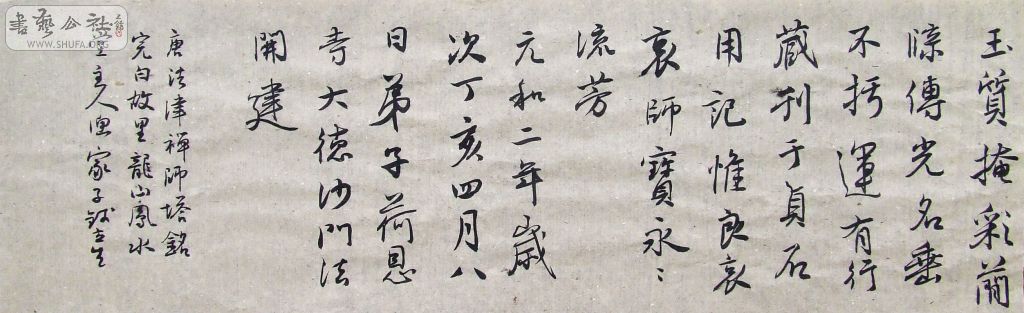 玉質掩彩蘭
牒傳光名垂
不朽運有行
藏刊于貞石
用記惟良哀
哀師寶永〻
流芳
元和二年歲
次丁亥四月八
日弟子荷恩
寺大德沙門法
開建
唐法津禪師塔銘
完白故里龍山鳳水
主人
書藝公社
WWW.SHUFA.ORG